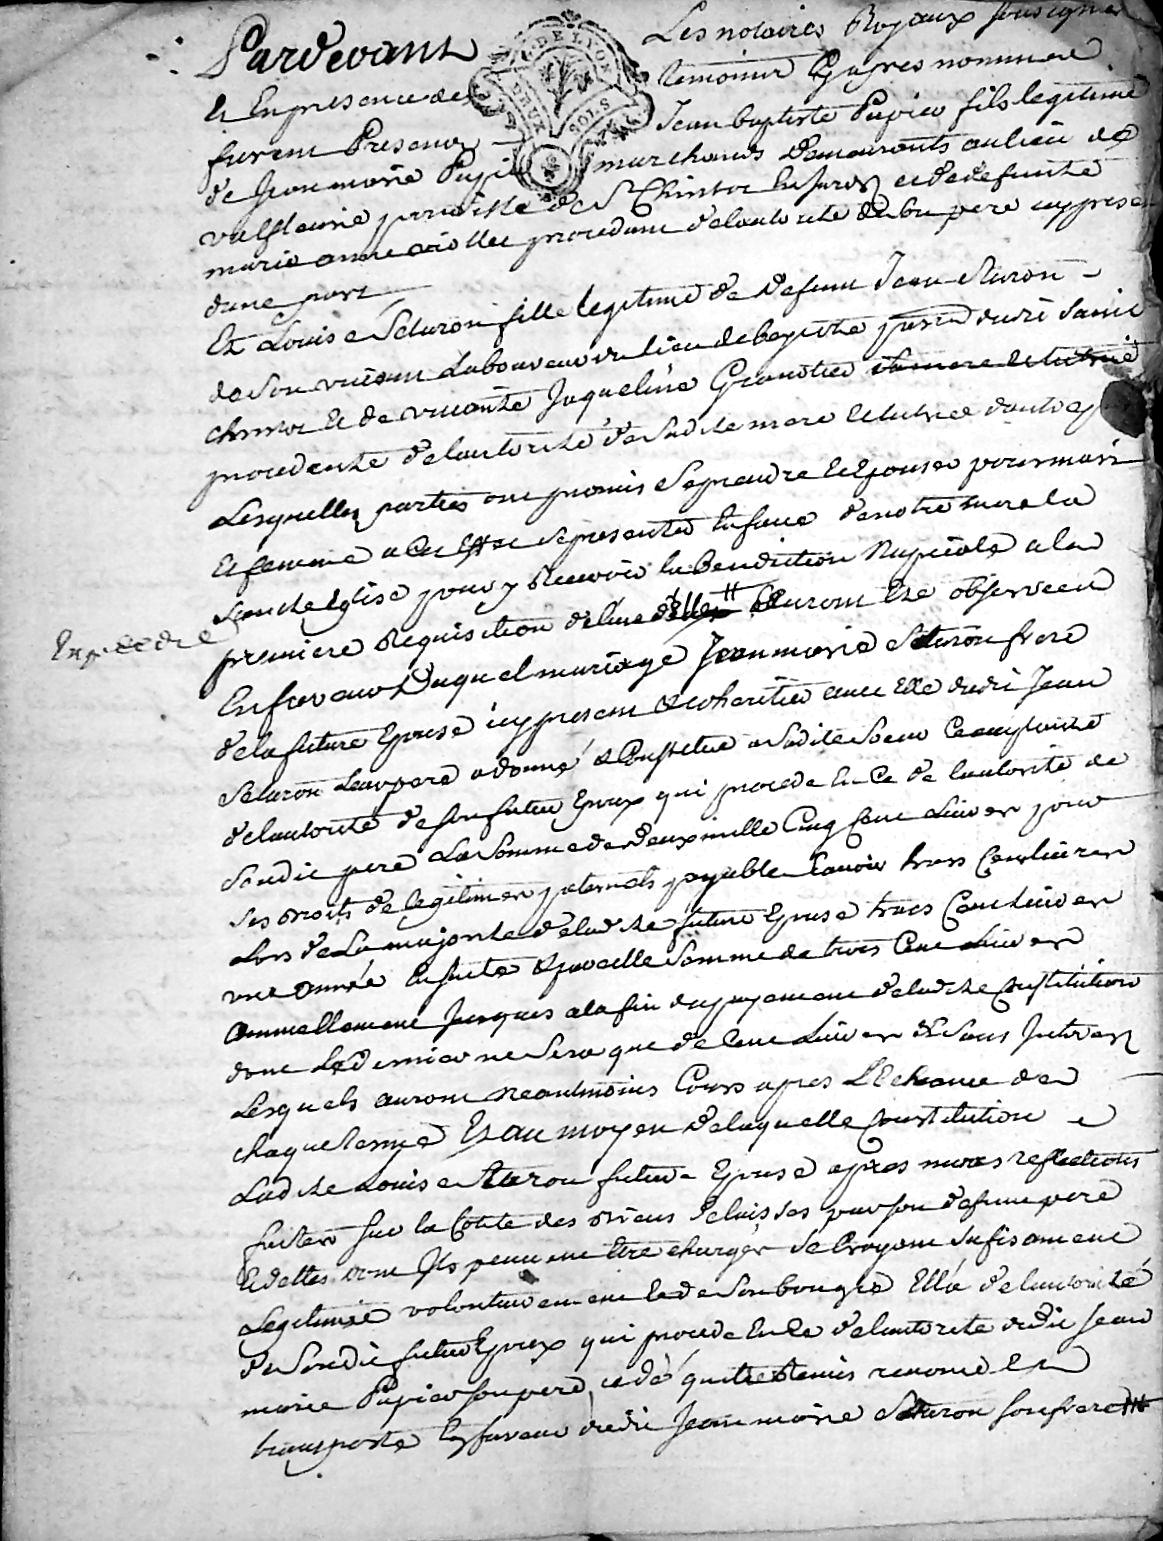 Pardevant Les notaires Royaux soussignes
& En presence des temoins Cy apres nommes
furent Presents Jean baptiste Papier fils legitime
G. DE LYON
DEUX SOLS
de Jean marie Papier marchands demeurants au lieu de
valfleurie parroisse de St Christo en Jarez et de defunte
marie anne procedant de lautorite de son pere icy present
dune part
Et Louise Seturon fille legitime de defunt Jean Seturon
de son vivant Laboureur du lieu de parroisse dudit Saint
christo & de vivante Jaqueline Grandtier sa mere et tutrice
procedente de lautorité de sadite mere et tutrice dautre part
Lesquelles parties ont promis se prendre et Epouser pour mari
et femme a cet effet se presenter En face de notre mere la
Sainte Eglise pour y Recevoir la Benediction Nuptiale a la
premiere Requisition de lune delles observée
Expedié
En faveur Duquel mariage Jean marie Seturon frere
de la future Epouse icy present & coheritier avec Elle dudit Jean
Seturon Leur pere a donné & Constitué a sadite Soeur Comptante
de lautorité de son futur Epoux qui procede En Ce de lautorité de
son dit pere La Somme de deux mille Cinq Cent Livres pour
ses droits de legitimes paternels payable Savoir trois Cent livres
Lors de La majorité de ladite future Epouse trois Cent livres
une année Ensuite & pareille Somme de trois Cent Livres
annuellement Jusques a la fin du payement de ladite Constitution
dont Le dernier ne Sera que de Cent Livres & Sans Interets
Lesquels auront neantmoins Cours apres LEcheance de
chaque terme Et au moyen de laquelle Constitution
Ladite Louise Seturon future Epouse apres mures reflections
faites Sur la Cotite des Biens delaissés par son defunt pere
& dettes dont Ils peuvent Etre chargés Se Croyant Sufisament
Legitimée volontairement & de Son bon gré Elle de lautorité
de Sondit futur Epoux qui procede En Ce de lautorite dudit Jean
marie Papier son pere cede quitte Remis renoncé &
transporté En faveur dudit Jean marie Seturon son frere